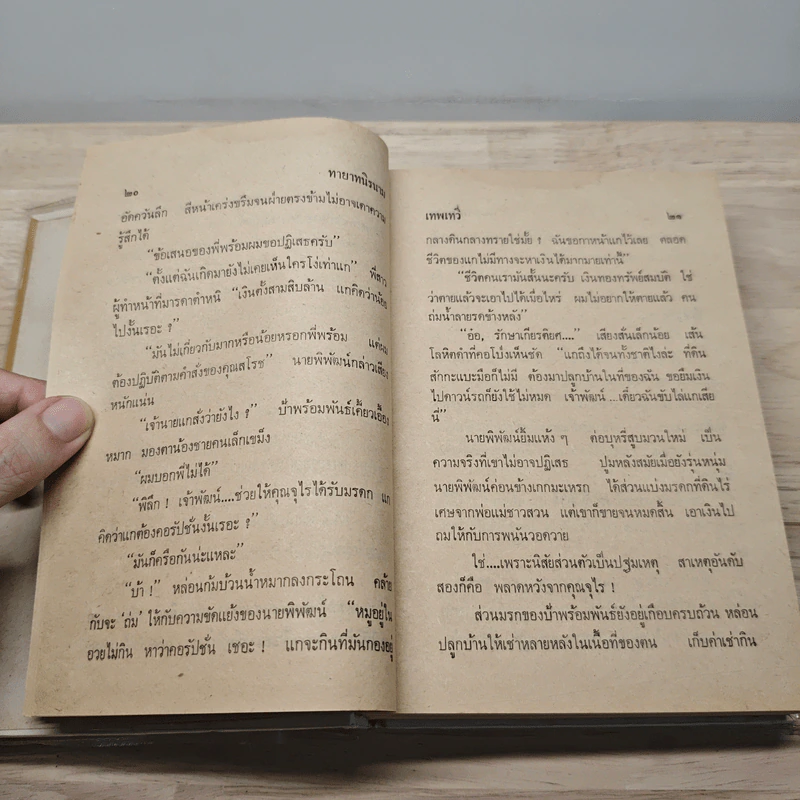 ๒๐ ทายาทนิรนาม
อัดควันลึก สีหน้าเคร่งขรึมจนฝ่ายตรงข้ามไม่อาจเดาความ
รู้สึกได้
“ข้อเสนอของพี่พร้อมผมขอปฏิเสธครับ”
“ตั้งแต่ฉันเกิดมายังไม่เคยเห็นใครโง่เท่าแก” พี่สาว
ผู้ทำหน้าที่มารดาตำหนิ “เงินตั้งสามสิบล้าน แกคิดว่าน้อย
ไปงั้นเรอะ ?”
“มันไม่เกี่ยวกับมากหรือน้อยหรอกพี่พร้อม แต่ผม
ต้องปฏิบัติตามคำสั่งของคุณสโรช” นายพิพัฒน์กล่าวเสียง
หนักแน่น
“เจ้านายแกสั่งว่ายังไง ?” ป้าพร้อมพันธ์เคี้ยวเอื้อง
หมาก มองตาน้องชายคนเล็กเขม็ง
“ผมบอกพี่ไม่ได้”
“พิลึก ! เจ้าพัฒน์....ช่วยให้คุณจุไรได้รับมรดก แก
คิดว่าแกต้องคอรัปชั่นงั้นเรอะ ?”
“มันก็ครือกันน่ะแหละ”
“บ้า !” หล่อนก้มบ้วนน้ำหมากลงกระโถน คล้าย
กับจะ ‘ถ่ม’ ให้กับความขัดแย้งของนายพิพัฒน์ “หมูอยู่ใน
อวยไม่กิน หาว่าคอรัปชั่น เชอะ ! แกจะกินที่มันกองอยู่
เทพเทวี ๒๑
กลางดินกลางทรายใช่มั้ย ! ฉันขอกาหน้าแกไว้เลย ตลอด
ชีวิตของแกไม่มีทางจะหาเงินได้มากมายเท่านี้”
“ชีวิตคนเรามันสั้นนะครับ เงินทองทรัพย์สมบัติ ใช่
ว่าตายแล้วจะเอาไปได้เมื่อไหร่ ผมไม่อยากให้ตายแล้ว คน
ถ่มน้ำลายรดข้างหลัง”
“อ๋อ, รักษาเกียรติยศ....” เสียงสั่นเล็กน้อย เส้น
โลหิตดำที่คอโป่งเห็นชัด “แกถึงได้จนทั้งชาติไงล่ะ ที่ดิน
สักกะแบะมือก็ไม่มี ต้องมาปลูกบ้านในที่ของฉัน ขอยืมเงิน
ไปดาวน์รถก็ยังใช้ไม่หมด เจ้าพัฒน์ ...เดี๋ยวฉันขับไล่แกเสีย
นี่”
นายพิพัฒน์ยิ้มแห้ง ๆ ต่อบุหรี่สูบมวนใหม่ เป็น
ความจริงที่เขาไม่อาจปฏิเสธ ปูมหลังสมัยเมื่อยังรุ่นหนุ่ม
นายพิพัฒน์ค่อนข้างเกกมะเหรก ได้ส่วนแบ่งมรดกที่ดินไร่
เศษจากพ่อแม่ชาวสวน แต่เขาก็ขายจนหมดสิ้น เอาเงินไป
ถมให้กับการพนันวอดวาย
ใช่....เพราะนิสัยส่วนตัวเป็นปฐมเหตุ สาเหตุอันดับ
สองก็คือ พลาดหวังจากคุณจุไร !
ส่วนมรกของป้าพร้อมพันธ์ยังอยู่เกือบครบถ้วน หล่อน
ปลูกบ้านให้เช่าหลายหลังในเนื้อที่ของตน เก็บค่าเช่ากิน